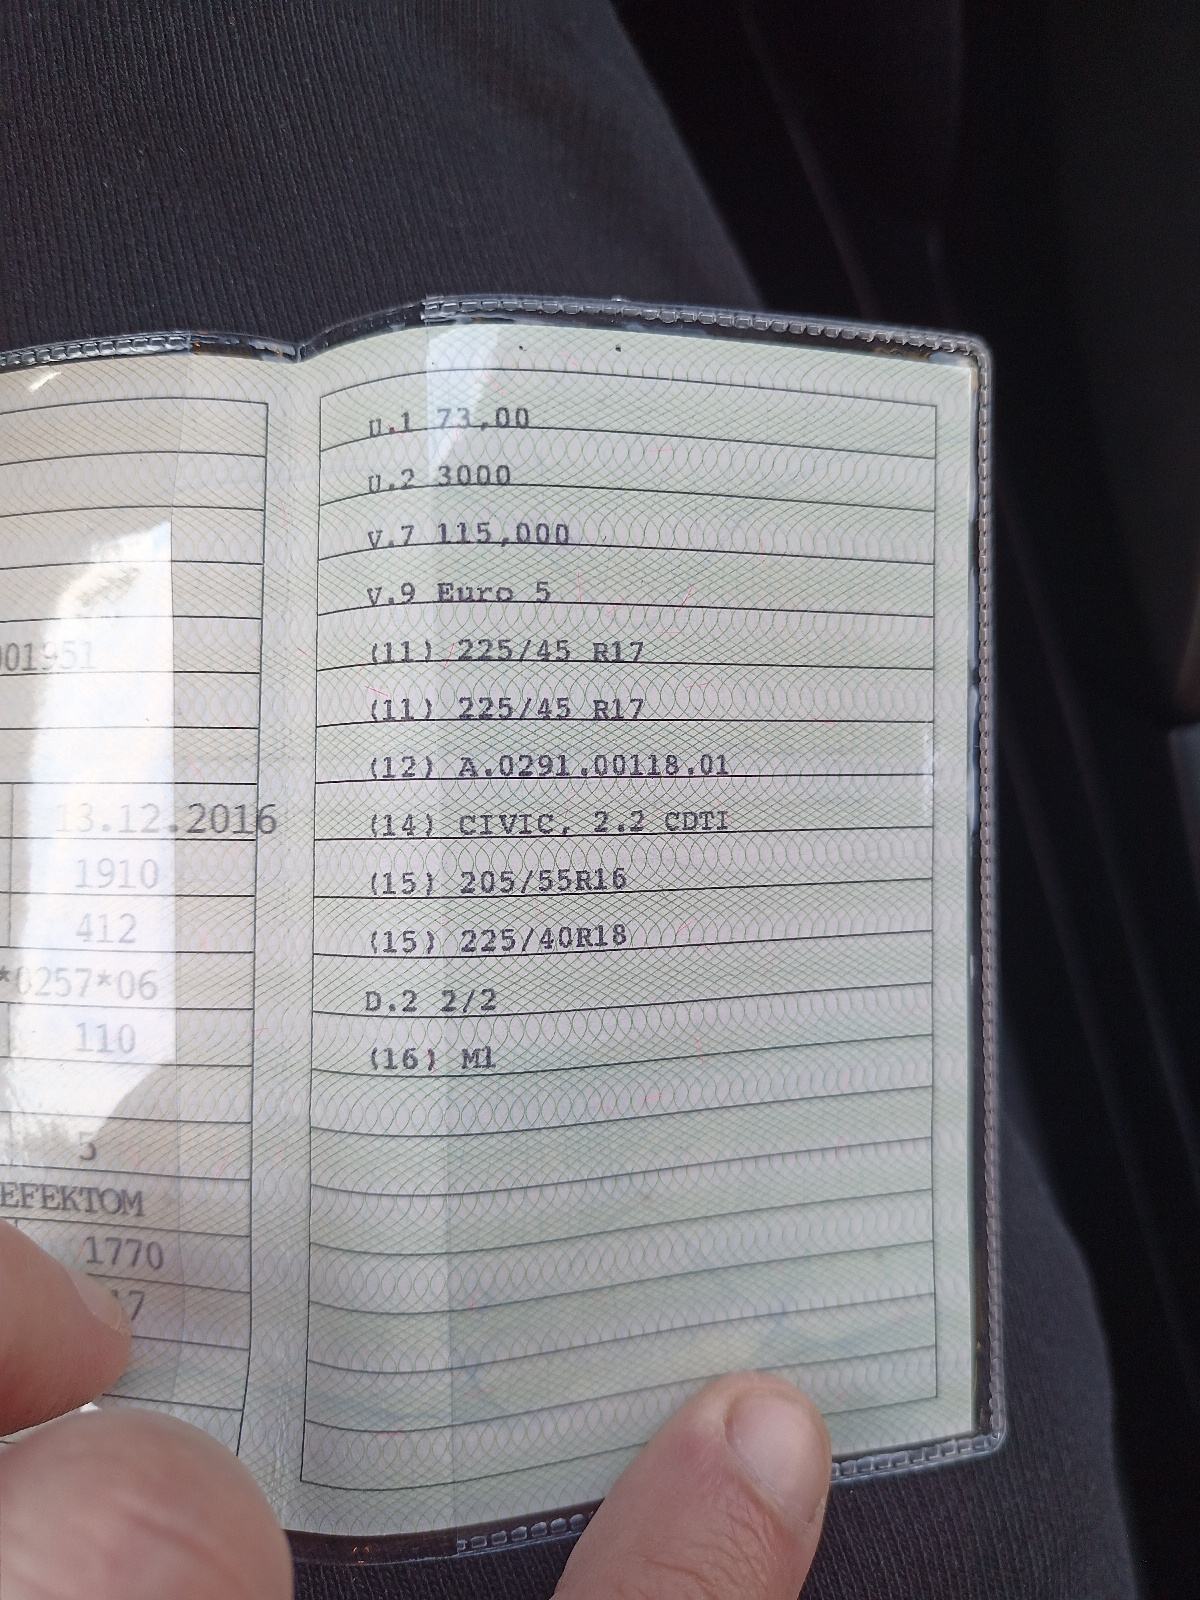 001951
13.12.2016
1910
412
*0257*06
110
5
EFEKTOM
1770
17
U.1 73,00
U.2 3000
V.7 115,000
V.9 Euro 5
(11) 225/45 R17
(11) 225/45 R17
(12) A.0291.00118.01
(14) CIVIC, 2.2 CDTI
(15) 205/55R16
(15) 225/40R18
D.2 2/2
(16) M1